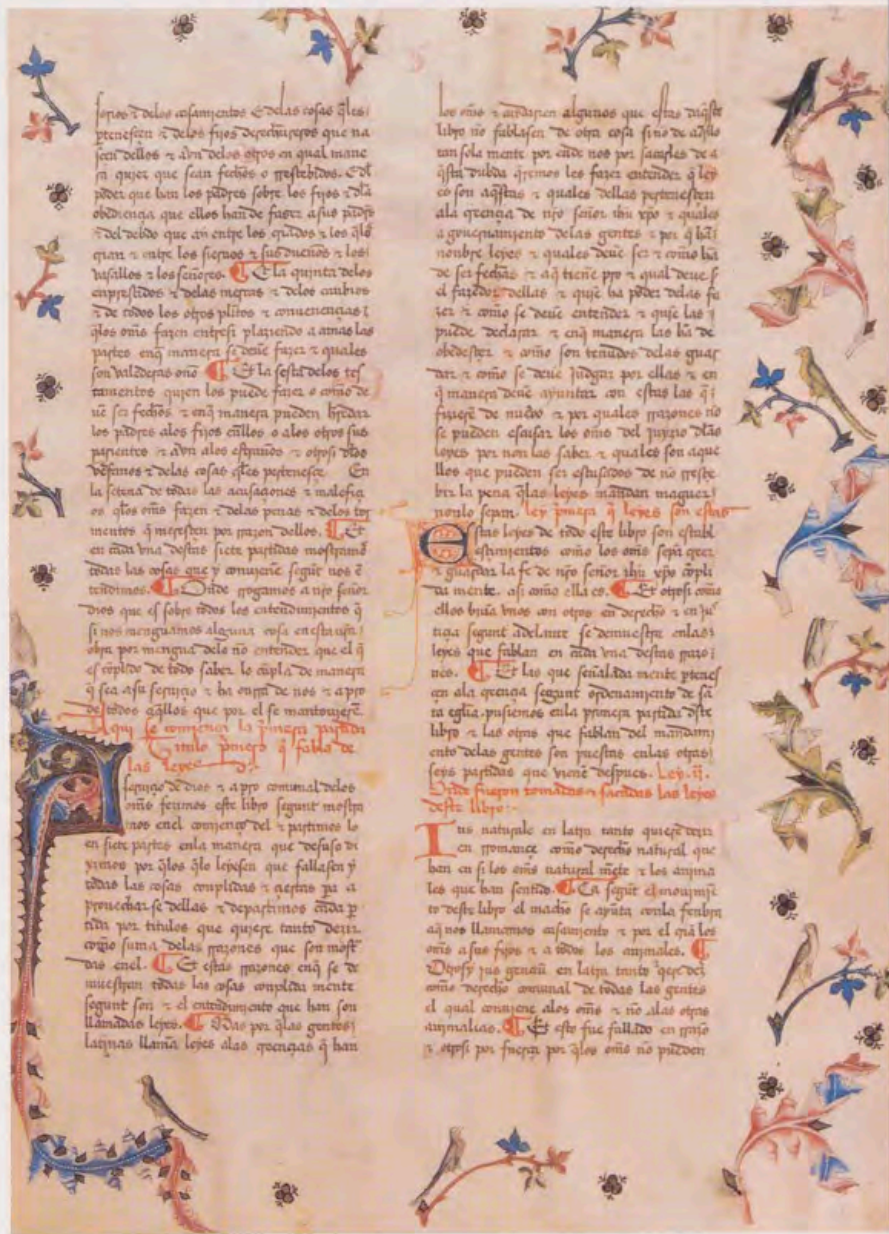 sorios & delos casamientos. E delas cosas q̃les
ꝑtenesçen & delos fijos derechureros que na
sçen dellos & avn delos otros en qual mane
ra quier que sean fechos o rresçebidos. E dl̃
poder que han los padres sobre los fijos & dla
obediençia que ellos han de fazer a sus padr̃s
& del debdo que ay entre los criados & los q̃ los
crian & entre los sieruos & sus dueños & los
vasallos & los señores. ¶ E la quinta delos
enprestidos & delas & delos canbios
& de todos los otros pl̃itos & conuenençias
q̃los om̃s fazen entresi plaziendo a amas las
partes enq̃ manera se deue fazer & quales
son valederas o nõ ¶ Et la sesta delos tes
tamentos quien los puede fazer o como de
uẽ ser fechos & enq̃ manera pueden heredar
los padres alos fijos o alos otros sus
parientes & avn alos estraños & otrosi dlos
& delas cosas q̃les pertenesçe En
la setena de todas las acusaçiones & malefiçi
os q̃los om̃s fazen & delas penas & delos tor
mentos q̃ meresçen por rrazon dellos. ¶ Et
en cada vna destas siete partidas mostramõ
todas las cosas que y conuiene segũt nos ẽ
tendimos. ¶ Onde rrogamos a nr̃o señor
dios que es sobre todos los entendimientos q̃
si nos menguamos alguna cosa en esta nr̃a
obra por mengua delo nõ entender que el q̃
es cõplido de todo saber lo cũpla de manera
q̃ sea a su seruiçio & ha onrra de nos & a pro
de todos aq̃llos que por el se mantouierẽ.
Aqui se comiença la p̃mera partida
Titulo p̃mero q̃ fabla de
las leyes
A seruiçio de dios & a pro comunal delos
om̃s fezimos este libro segunt mostra
mos enel comienço del & partimos lo
en siete partes enla manera que desuso di
ximos por q̃los q̃lo leyesen que fallasen y
todas las cosas conplidas & çiertas pa a
prouechar se dellas & departimos cada p̃
tida por titulos que quiere tanto dezir
como suma delas rrazones que son most̃
das enel. ¶ Et estas rrazones enq̃ se de
muestran todas las cosas conplida mente
segunt son & el entendimiento que han son
llamadas leyes. ¶ Mas por q̃las gentes
latinas llamã leyes alas creençias q̃ han
los om̃s & cuidarien algunos que estas daq̃ste
libro nõ fablasen de otra cosa si nõ de aq̃llo
tan sola mente por ende nos por sacarles de a
q̃sta dubda q̃remos les fazer entender q̃ ley
es son aq̃stas & quales dellas pertenesçen
ala creençia de nr̃o señor ihũ xpõ & quales
a gouernamiento delas gentes & por q̃ hã
nonbre leyes & quales deuẽ ser & como hã
de ser fechas & a q̃ tiene pro & qual deue sr̃
el fazedor dellas & quiẽ ha poder delas fa
zer & como se deue entender & quiẽ las
puede declarar & enq̃ manera las hã de
obedesçer & como son tenudos delas guar
dar & como se deue judgar por ellas & en
q̃ manera deuẽ ayuntar con estas las q̃
fizierẽ de nueuo & por quales rrazones nõ
se pueden escusar los om̃s del juyzio dlas
leyes por non las saber & quales son aque
llos que pueden ser escusados de nõ rresçe
bir la pena q̃las leyes mandan maguer
nonlo sepan. Ley p̃mera q̃ leyes son estas
Estas leyes de todo este libro son establ
esçimientos como los om̃s sepã creer
& guardar la fe de nr̃o señor ihũ xpõ cõpli
da mente. asi como ella es. ¶ Et otrosi como
ellos biuã vnos con otros en derecho & en jus
tiçia segunt adelante se demuestra enlas
leyes que fablan en cada vna destas rrazo
nes. ¶ Et las que señalada mente ꝑtenes
çen ala creençia segunt ordenamiento de sã
ta egl̃ia. pusiemos enla primera partida dste
libro & las otras que fablan del mandami
ento delas gentes son puestas enlas otras
seys partidas que vienẽ despues. Ley .ij.
Onde fueron tomadas & sacadas las leyes
deste libro
Ius naturale en latin tanto quiere dezir
en rromançe como derecho natural que
han en si los om̃s natural mẽte & los anima
les que han sentido. ¶ Ca segũt el mouimiẽ
to deste libro el macho se ayũta conla fenbra
aq̃ nos llamamos casamiento & por el criã los
om̃s a sus fijos & a todos los animales. ¶
Otrosy jus genciũ en latin tanto q̃ere dezir
como derecho comunal de todas las gentes
el qual conuiene alos om̃s & nõ alas otras
animalias. ¶ Et esto fue fallado en rrazõ
& otrosi por fuerça por q̃los om̃s nõ pueden